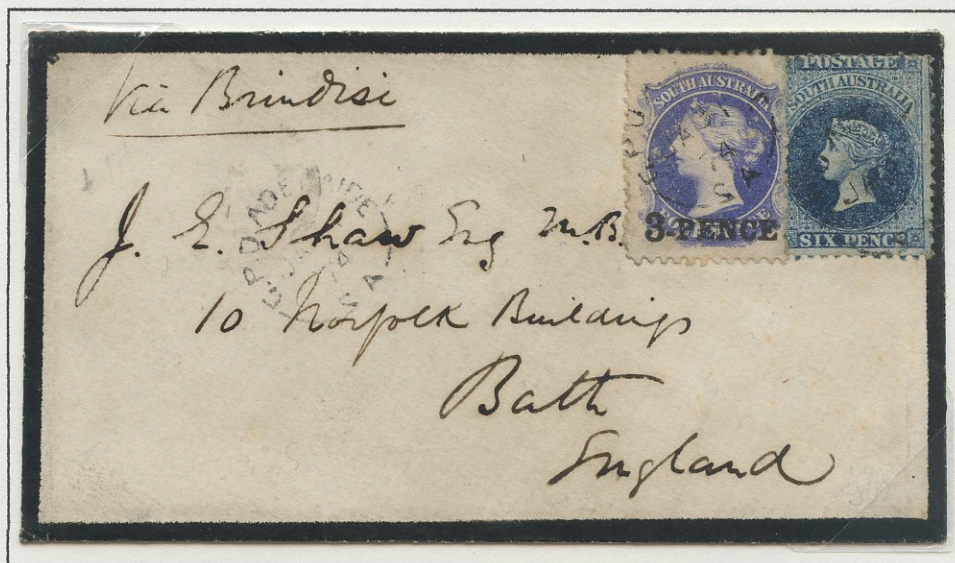 Via Brindisi
SOUTH AUSTRALIA
3-PENCE
POSTAGE
SOUTH AUSTRALIA
SIX PENCE
G.P.O. ADELAIDE
S A
J. E. Shaw Esq M.B.
10 Norfolk Buildings
Bath
England